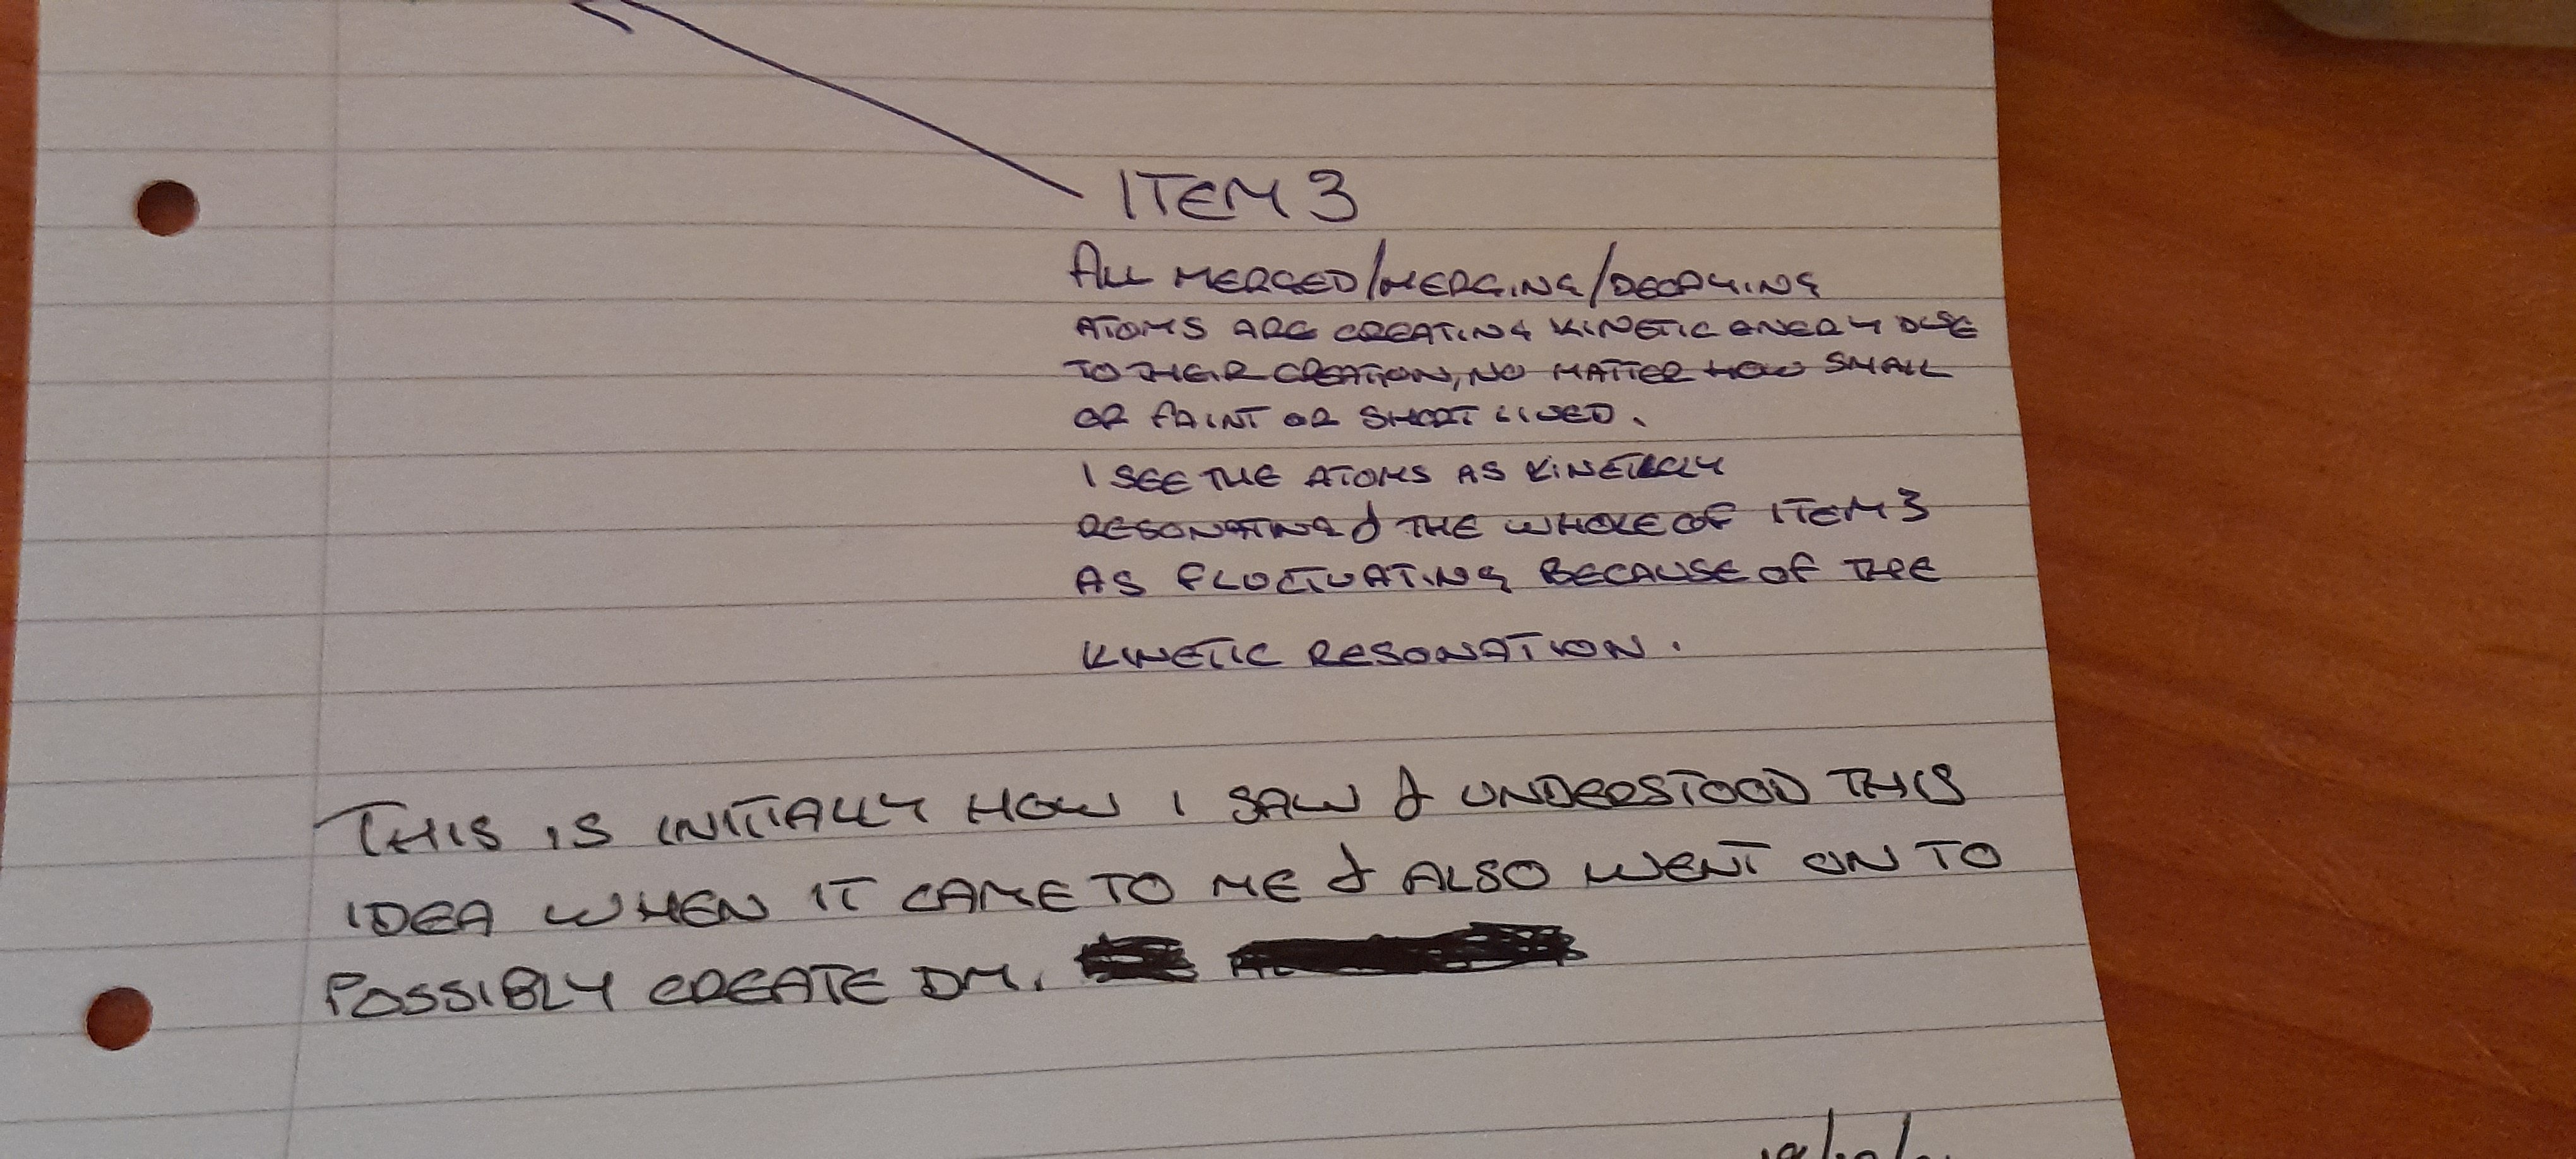 ITEM 3
ALL MERGED/MERGING/DECAYING
ATOMS ARE CREATING KINETIC ENERY DUE
TO THEIR CREATION, NO MATTER HOW SMALL
OR FAINT OR SHORT LIVED.
I SEE THE ATOMS AS
RESONATING & THE WHOLE OF ITEM 3
AS FLUCTUATING BECAUSE OF THE
KINETIC RESONATION.
THIS IS INITIALLY HOW I SAW & UNDERSTOOD THIS
IDEA WHEN IT CAME TO ME & ALSO WENT ON TO
POSSIBLY CREATE DM.